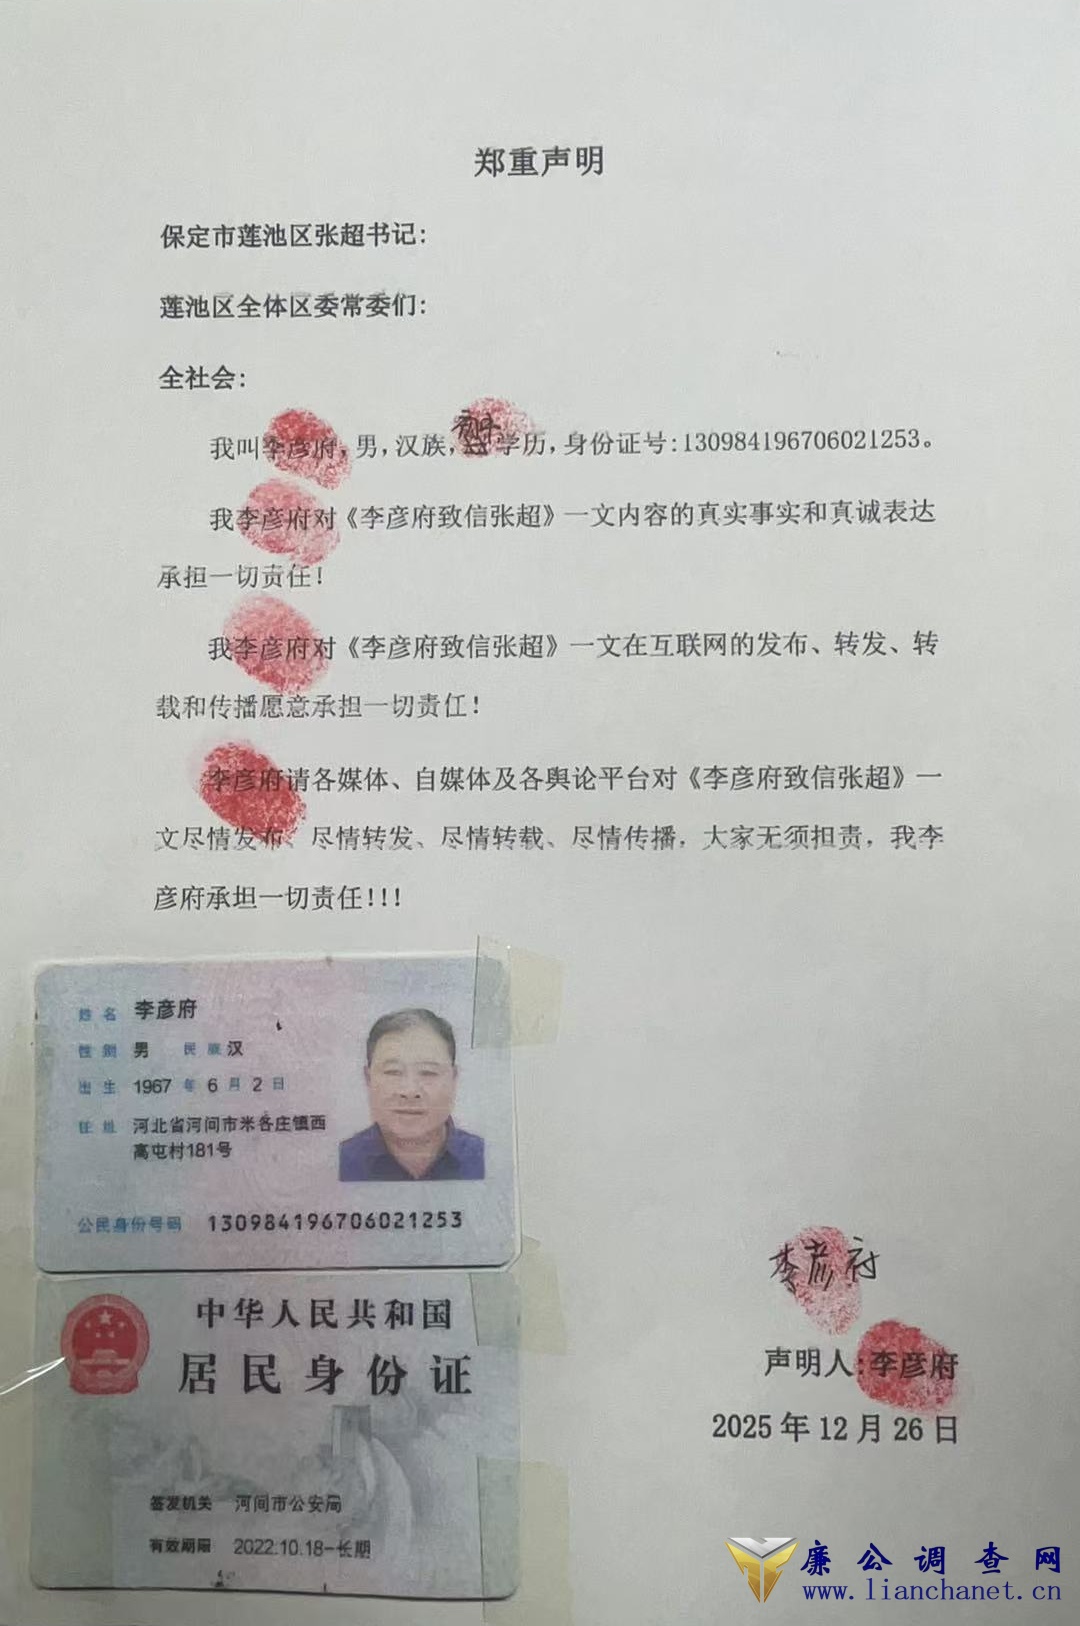 郑重声明
保定市莲池区张超书记:
莲池区全体区委常委们:
全社会:
我叫李彦府,男,汉族,学历,身份证号:130984196706021253。
我李彦府对《李彦府致信张超》一文内容的真实事实和真诚表达
承担一切责任!
我李彦府对《李彦府致信张超》一文在互联网的发布、转发、转
载和传播愿意承担一切责任!
李彦府请各媒体、自媒体及各舆论平台对《李彦府致信张超》一
文尽情发布、尽情转发、尽情转载、尽情传播,大家无须担责,我李
彦府承担一切责任!!!
姓名 李彦府
性别 男 民族 汉
出生 1967 年 6 月 2 日
住址 河北省河间市米各庄镇西
高屯村181号
公民身份号码 130984196706021253
中华人民共和国
居民身份证
签发机关 河间市公安局
有效期限 2022.10.18-长期
李彦府
声明人:李彦府
2025年12月26日
廉公调查网
www.lianchanet.cn